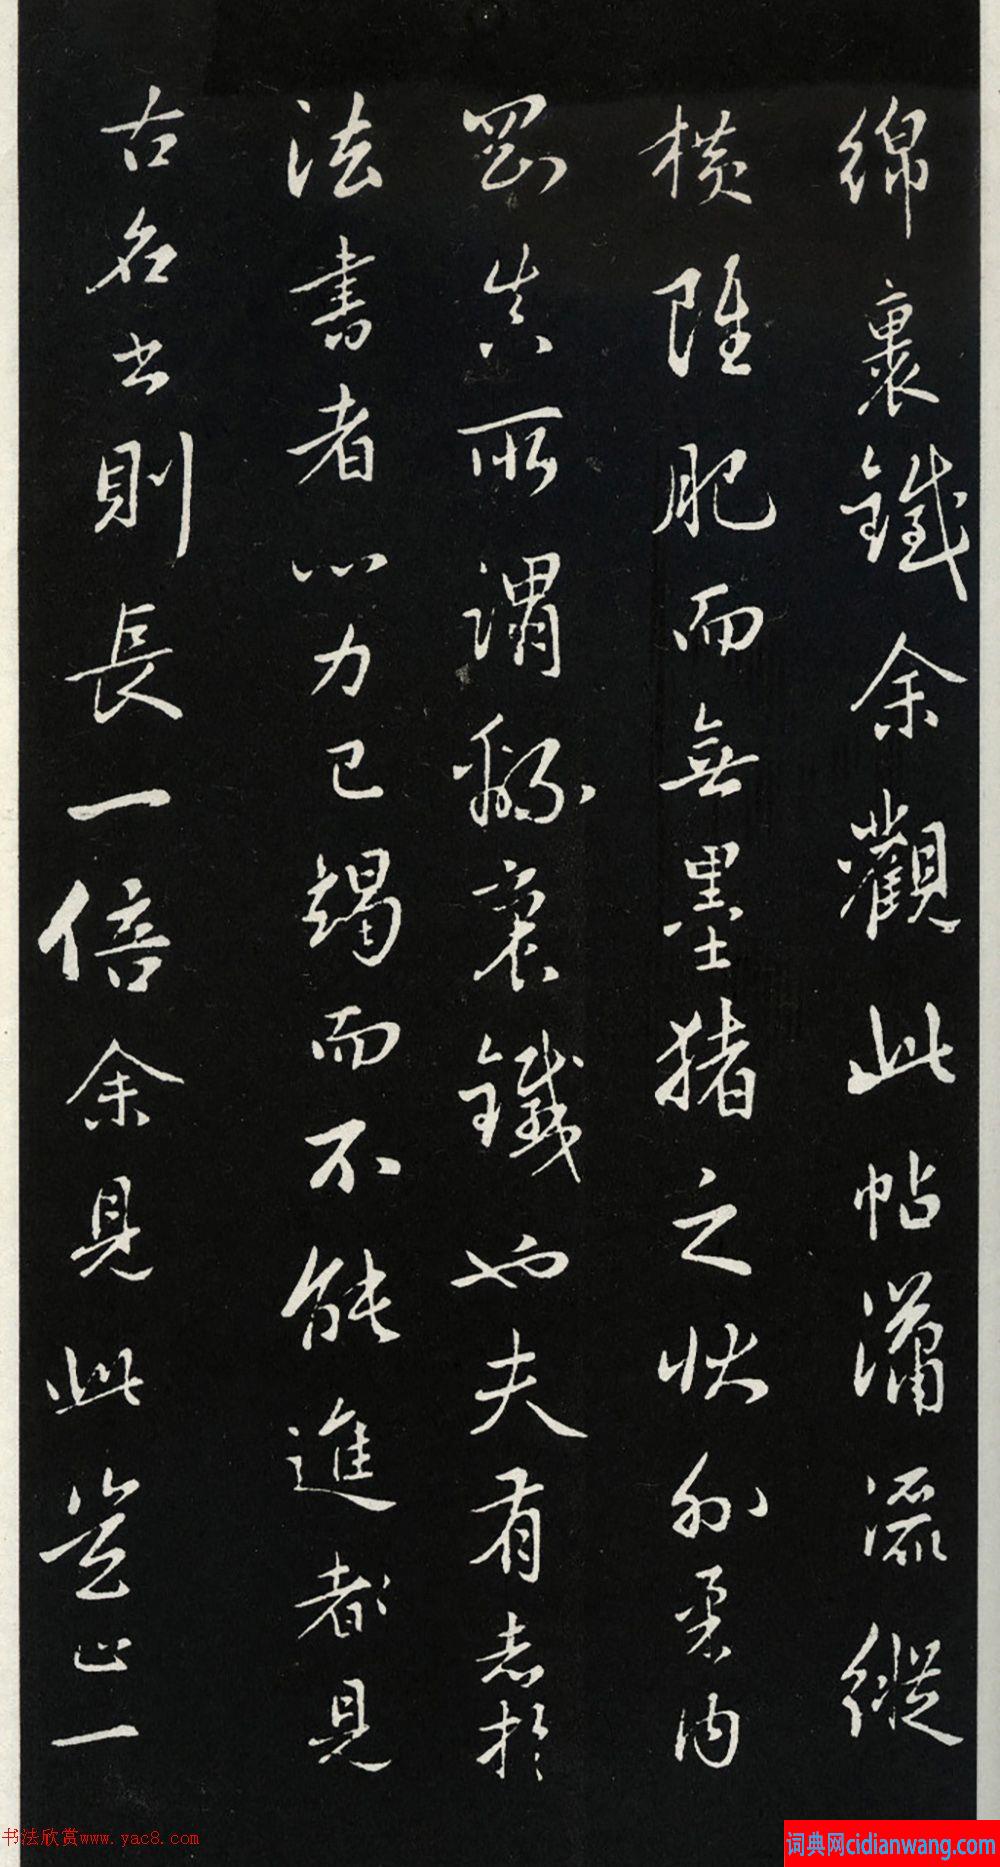 綿裹鐵余觀此帖瀟灑縱
横雖肥而無墨猪之狀外柔内
剛真所謂綿裹鐵也夫有志於
法書者心力已竭而不能進者見
古名書則長一倍余見此豈止一
书法欣赏www.yac8.com
词典网cidianwang.com